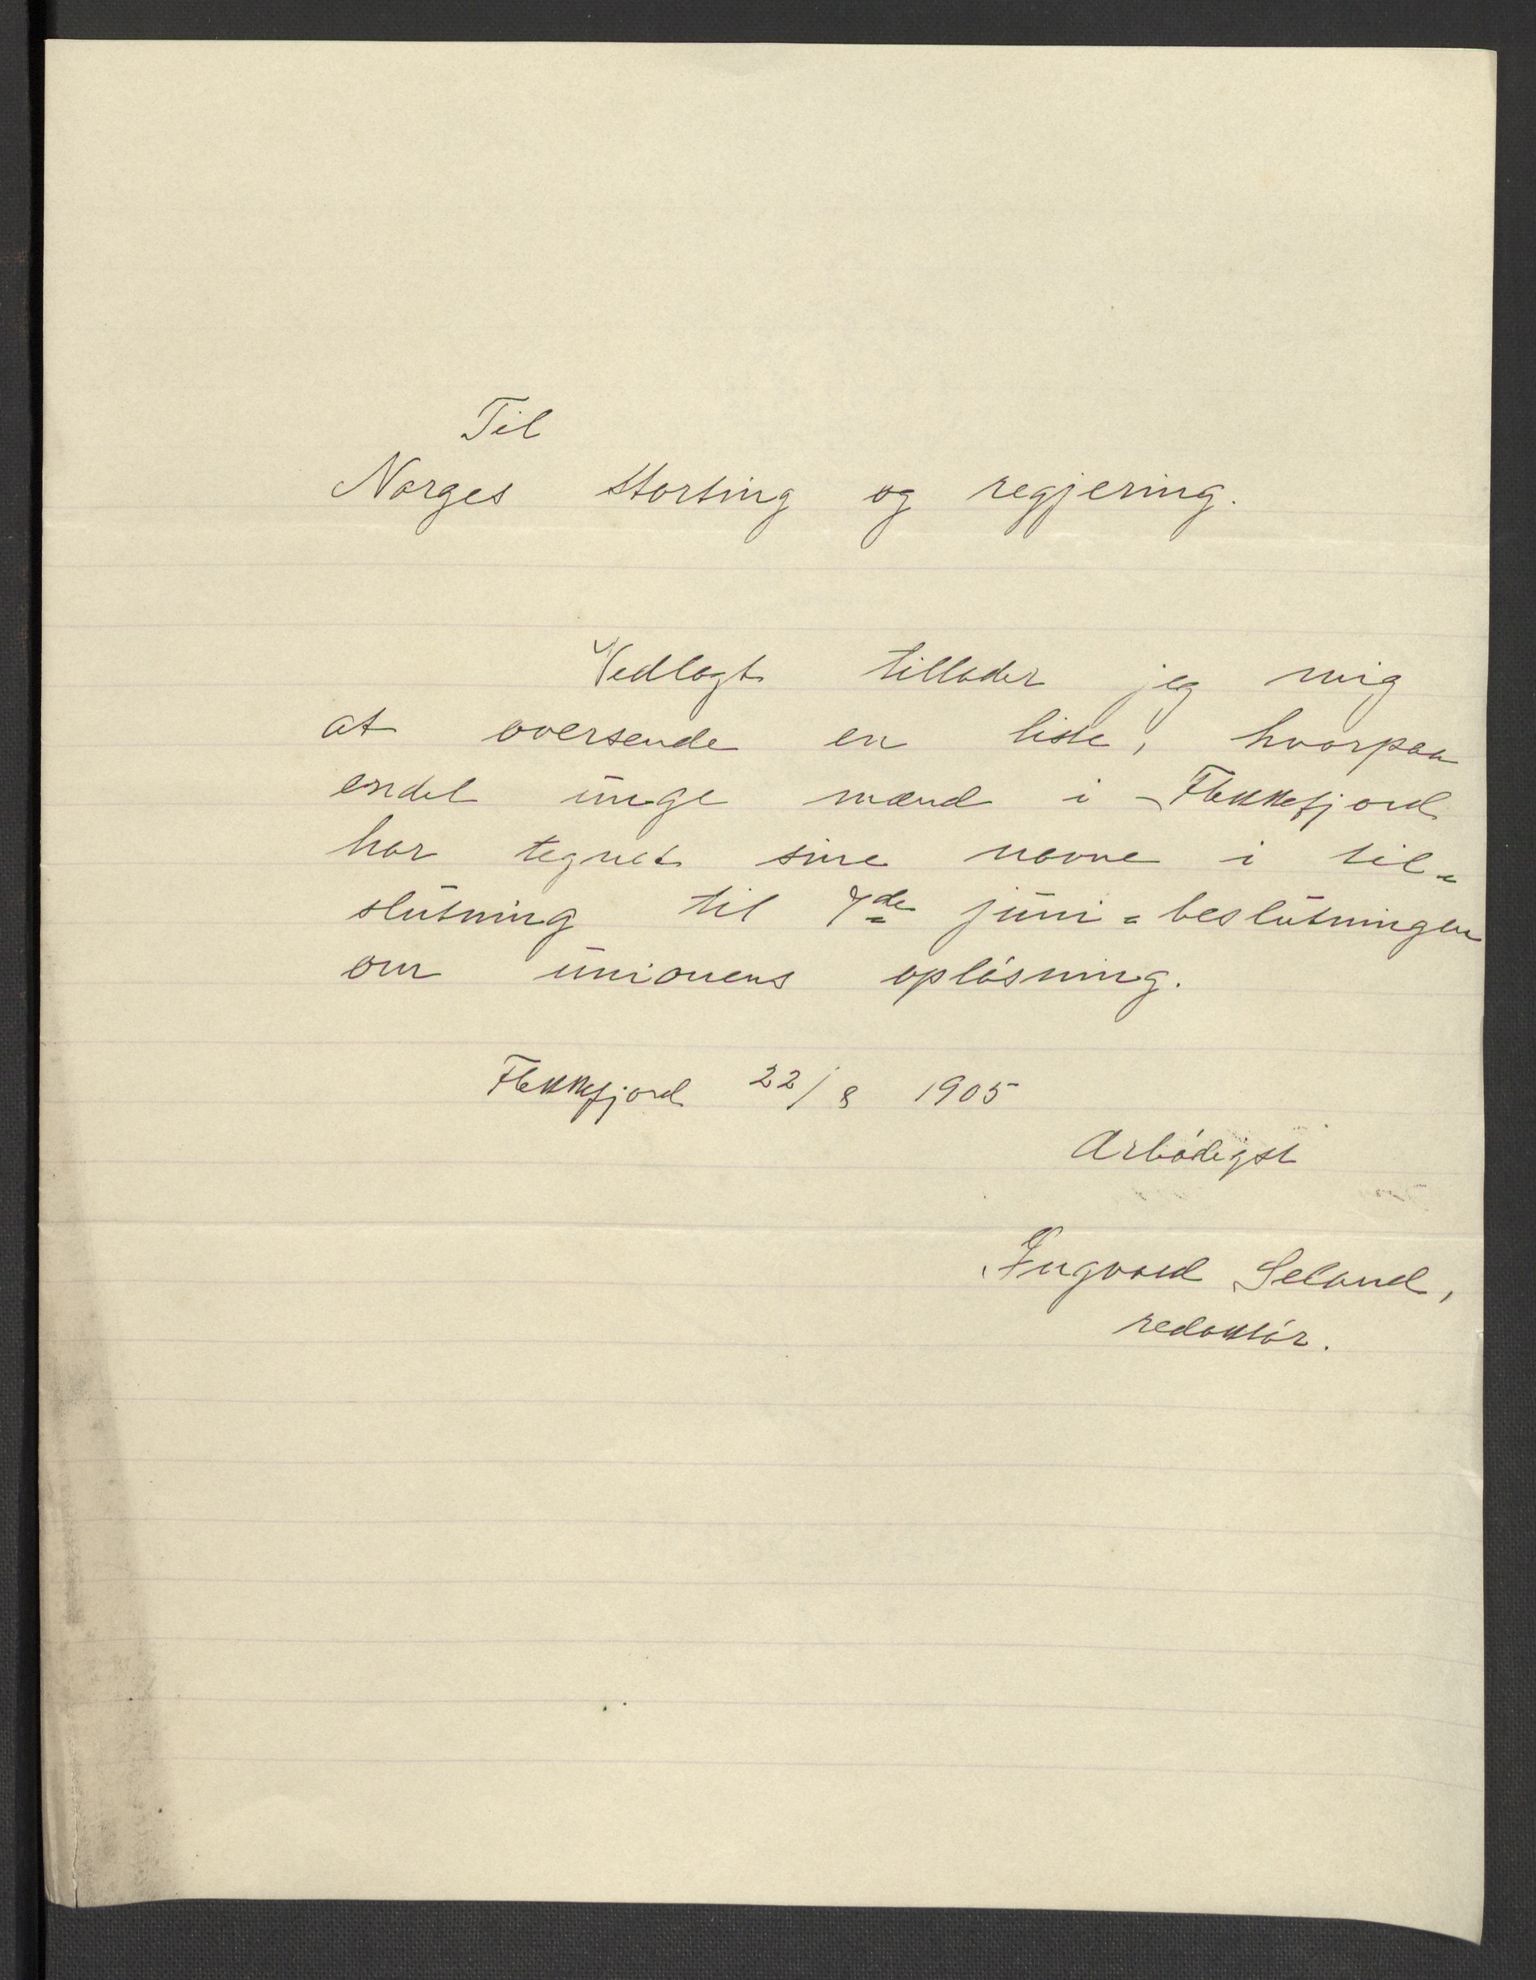 Til
Norges storting og regjering.
Vedlagt tillader jeg mig
at oversende en liste, hvorpaa
endel unge mænd i Flekkefjord
har tegnet sine navne i til=
slutning til 7de juni=beslutningen
om unionens opløsning.
Flekkefjord 22/8 1905
Arbødigst
Ingvald Seland,
redaktør.